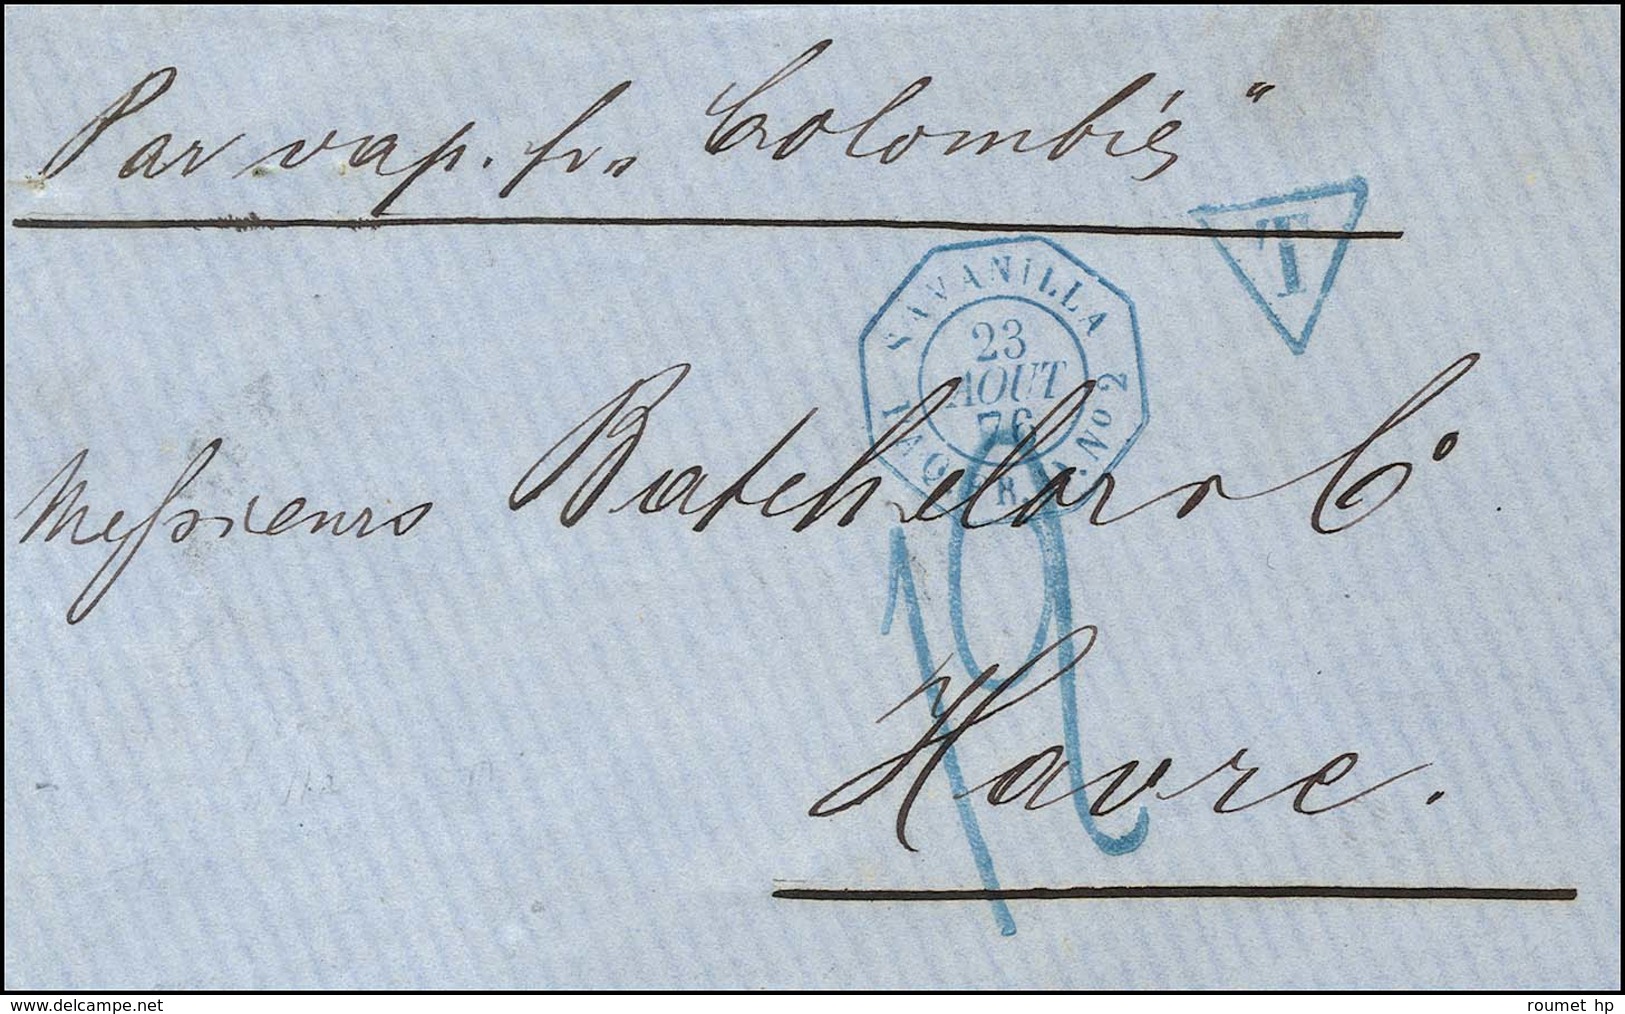 Par vap. fr. „Colombie“
T
SAVANILLA
23
AOUT
76
PAQ. FR. J. No 2
Messieurs Batchelor & Co
12
Havre.
delcampe.net
roumet hp